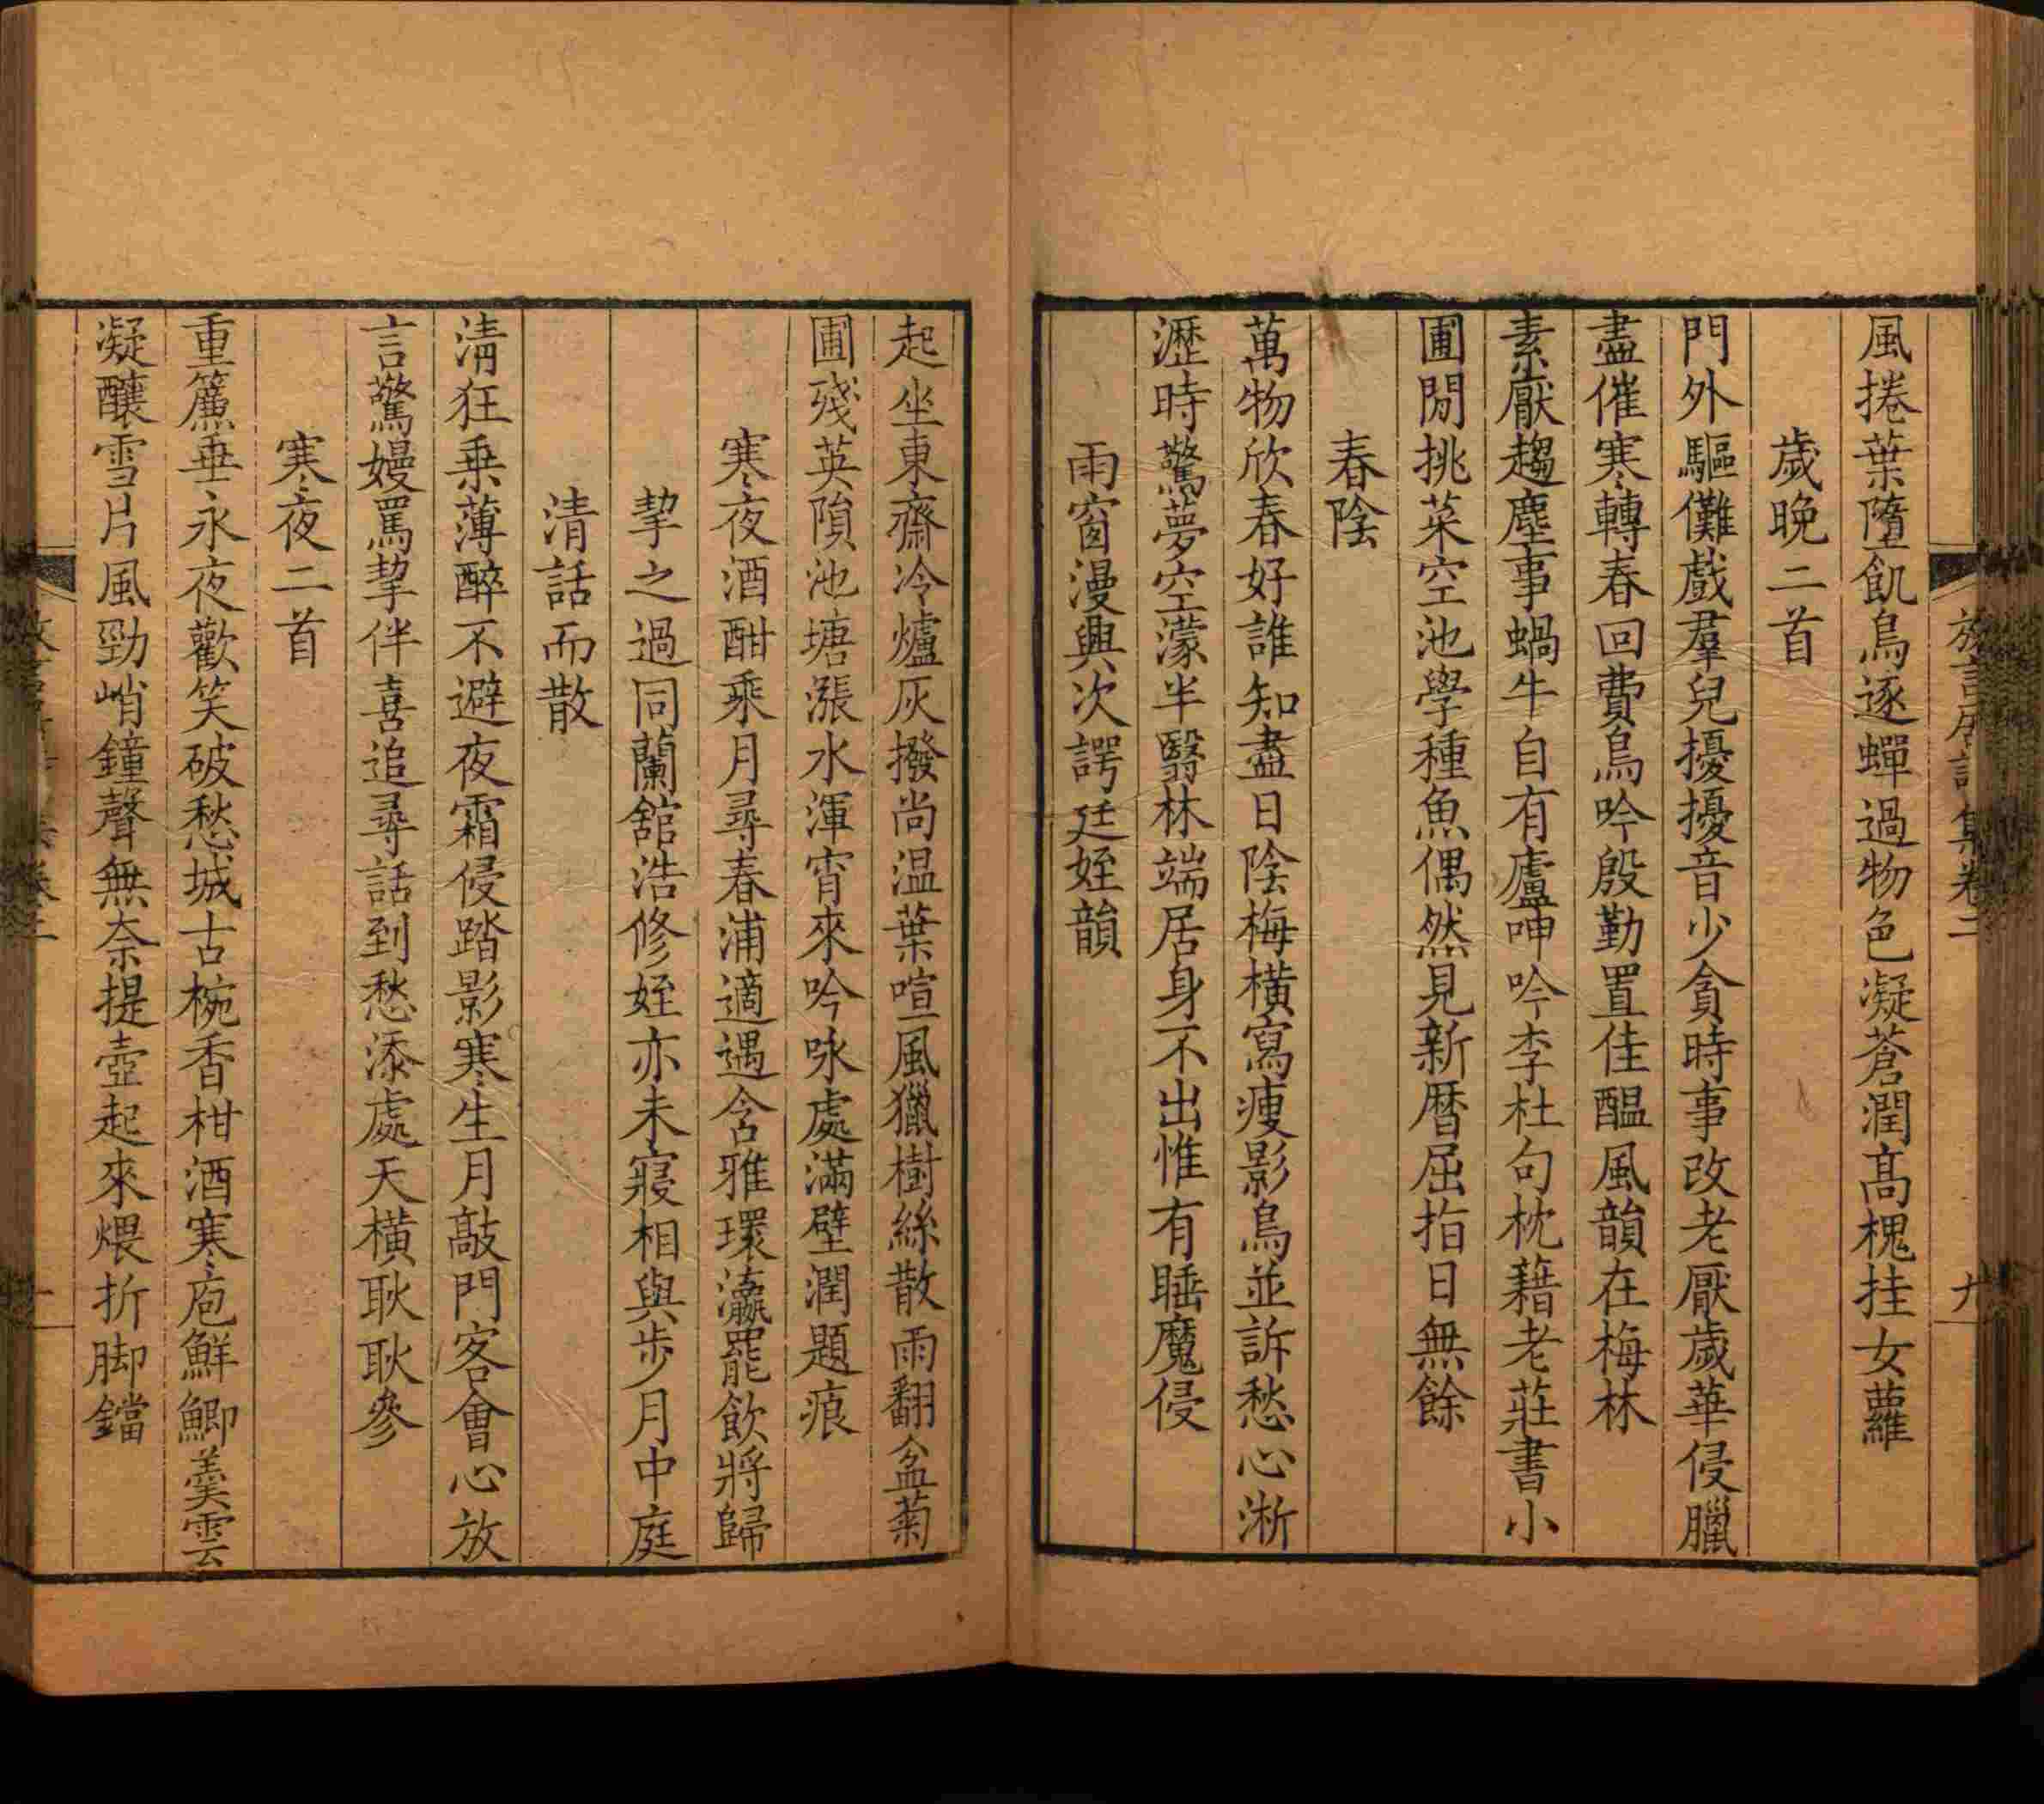 風捲葉墮飢烏逐蟬過物色凝蒼潤髙槐挂女蘿
歲晚二首
門外驅儺戲羣兒擾擾音少貪時事改老厭歲華侵臘
盡催寒轉春回費鳥吟殷勤置佳醖風韻在梅林
素厭趨塵事蝸牛自有廬呻吟李杜句枕藉老莊書小
圃閒挑菜空池學種魚偶然見新曆屈指日無餘
春陰
萬物欣春好誰知盡日陰梅橫寫瘦影鳥並訴愁心淅
瀝時驚夢空濛半翳林端居身不出惟有睡魔侵
雨窗漫興次諤廷姪韻
起坐東齋冷爐灰撥尚温葉喧風獵樹絲散雨翻盆菊
圃殘英隕池塘漲水渾宵來吟咏處滿壁潤題痕
寒夜酒酣乘月尋春浦適遇含雅環瀛罷飲將歸
挈之過同蘭舘浩修姪亦未寢相與步月中庭
清話而散
淸狂乗薄醉不避夜霜侵踏影寒生月敲門客會心放
言驚嫚罵挈伴喜追尋話到愁添處天橫耿耿參
寒夜二首
重簾垂永夜歡笑破愁城古椀香柑酒寒庖鮮鯽羹雲
凝釀雪片風勁峭鐘聲無奈提壺起來煨折脚鐺
集卷二
九